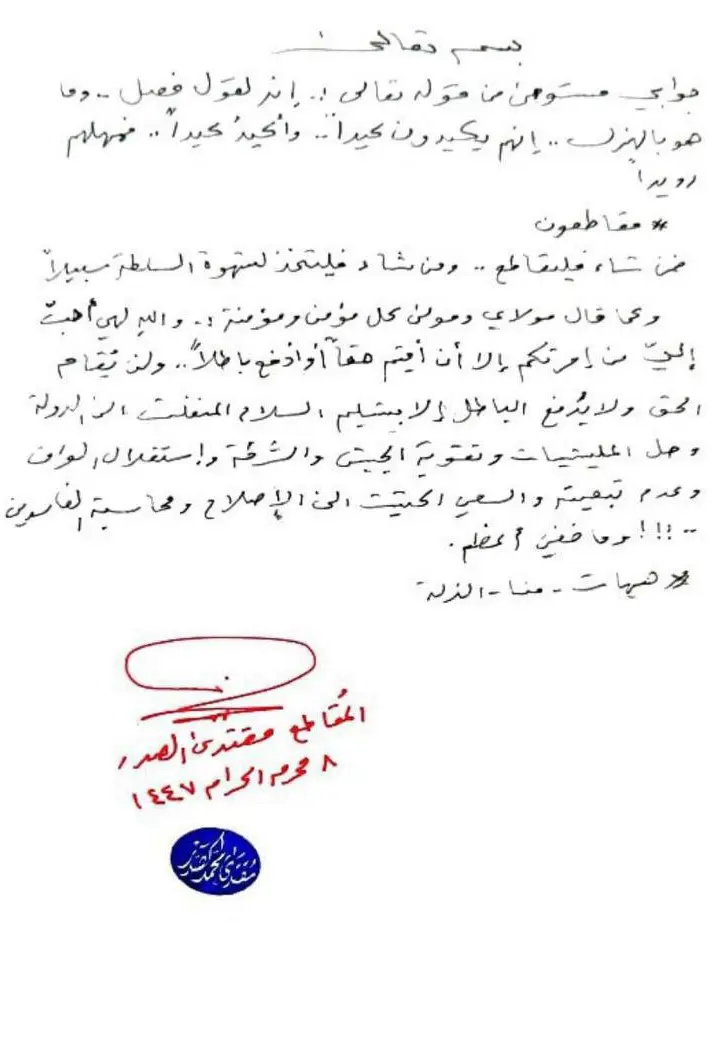 بسمه تعالى
جوابي مستوحى من قوله تعالى :. إنه لقول فصل .. وما
هو بالهزل .. إنهم يكيدون كيداً .. وأكيدُ كيداً .. فمهلهم
رويداً
# مقاطعون
فمن شاء فليقاطع .. ومن شاء فليتخذ لشهوة السلطة سبيلاً
وكما قال مولاي ومولى كل مؤمن ومؤمنة :. والله لهي أحبّ
إليّ من إمرتكم إلا أن أقيم حقاً أو أدفع باطلاً .. ولن يُقام
الحق ولا يُدفع الباطل إلا بتسليم السلاح المنفلت الى الدولة
وحل المليشيات وتقوية الجيش والشرطة وإستقلال العراق
وعدم تبعيته والسعي الحثيث الى الإصلاح ومحاسبة الفاسدين
.. !!! وما خفي أعظم .
# هيهات - منا - الذلة
المُقاطع مقتدى الصدر
٨ محرم الحرام ١٤٤٧
مقتدى محمد الصدر